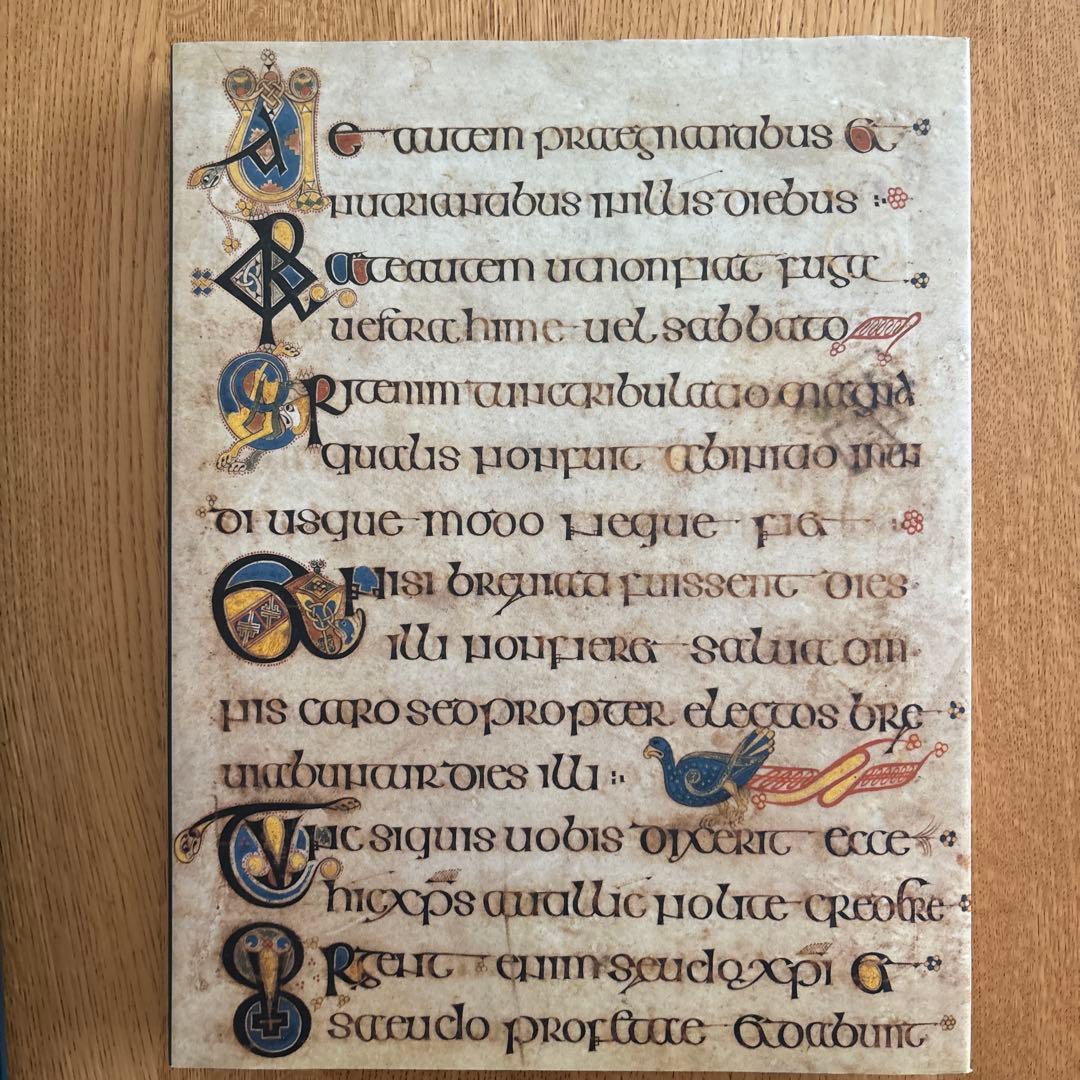 Uae autem praegnantibus &
nutriantibus in illis diebus
Orate autem ut non fiat fuga
uestra hime uel sabbato
Erit enim tunc tribulatio magna
qualis non fuit ab initio mun
di usque modo neque fi&
Et nisi breuiati fuissent dies
illi non fier& salua om
nis caro sed propter electos bre
uiabuntur dies illi
Tunc siquis uobis dixerit ecce
hic xps aut illic nolite credere
Surgent enim seudo xpi &
saeudo profetae & dabunt